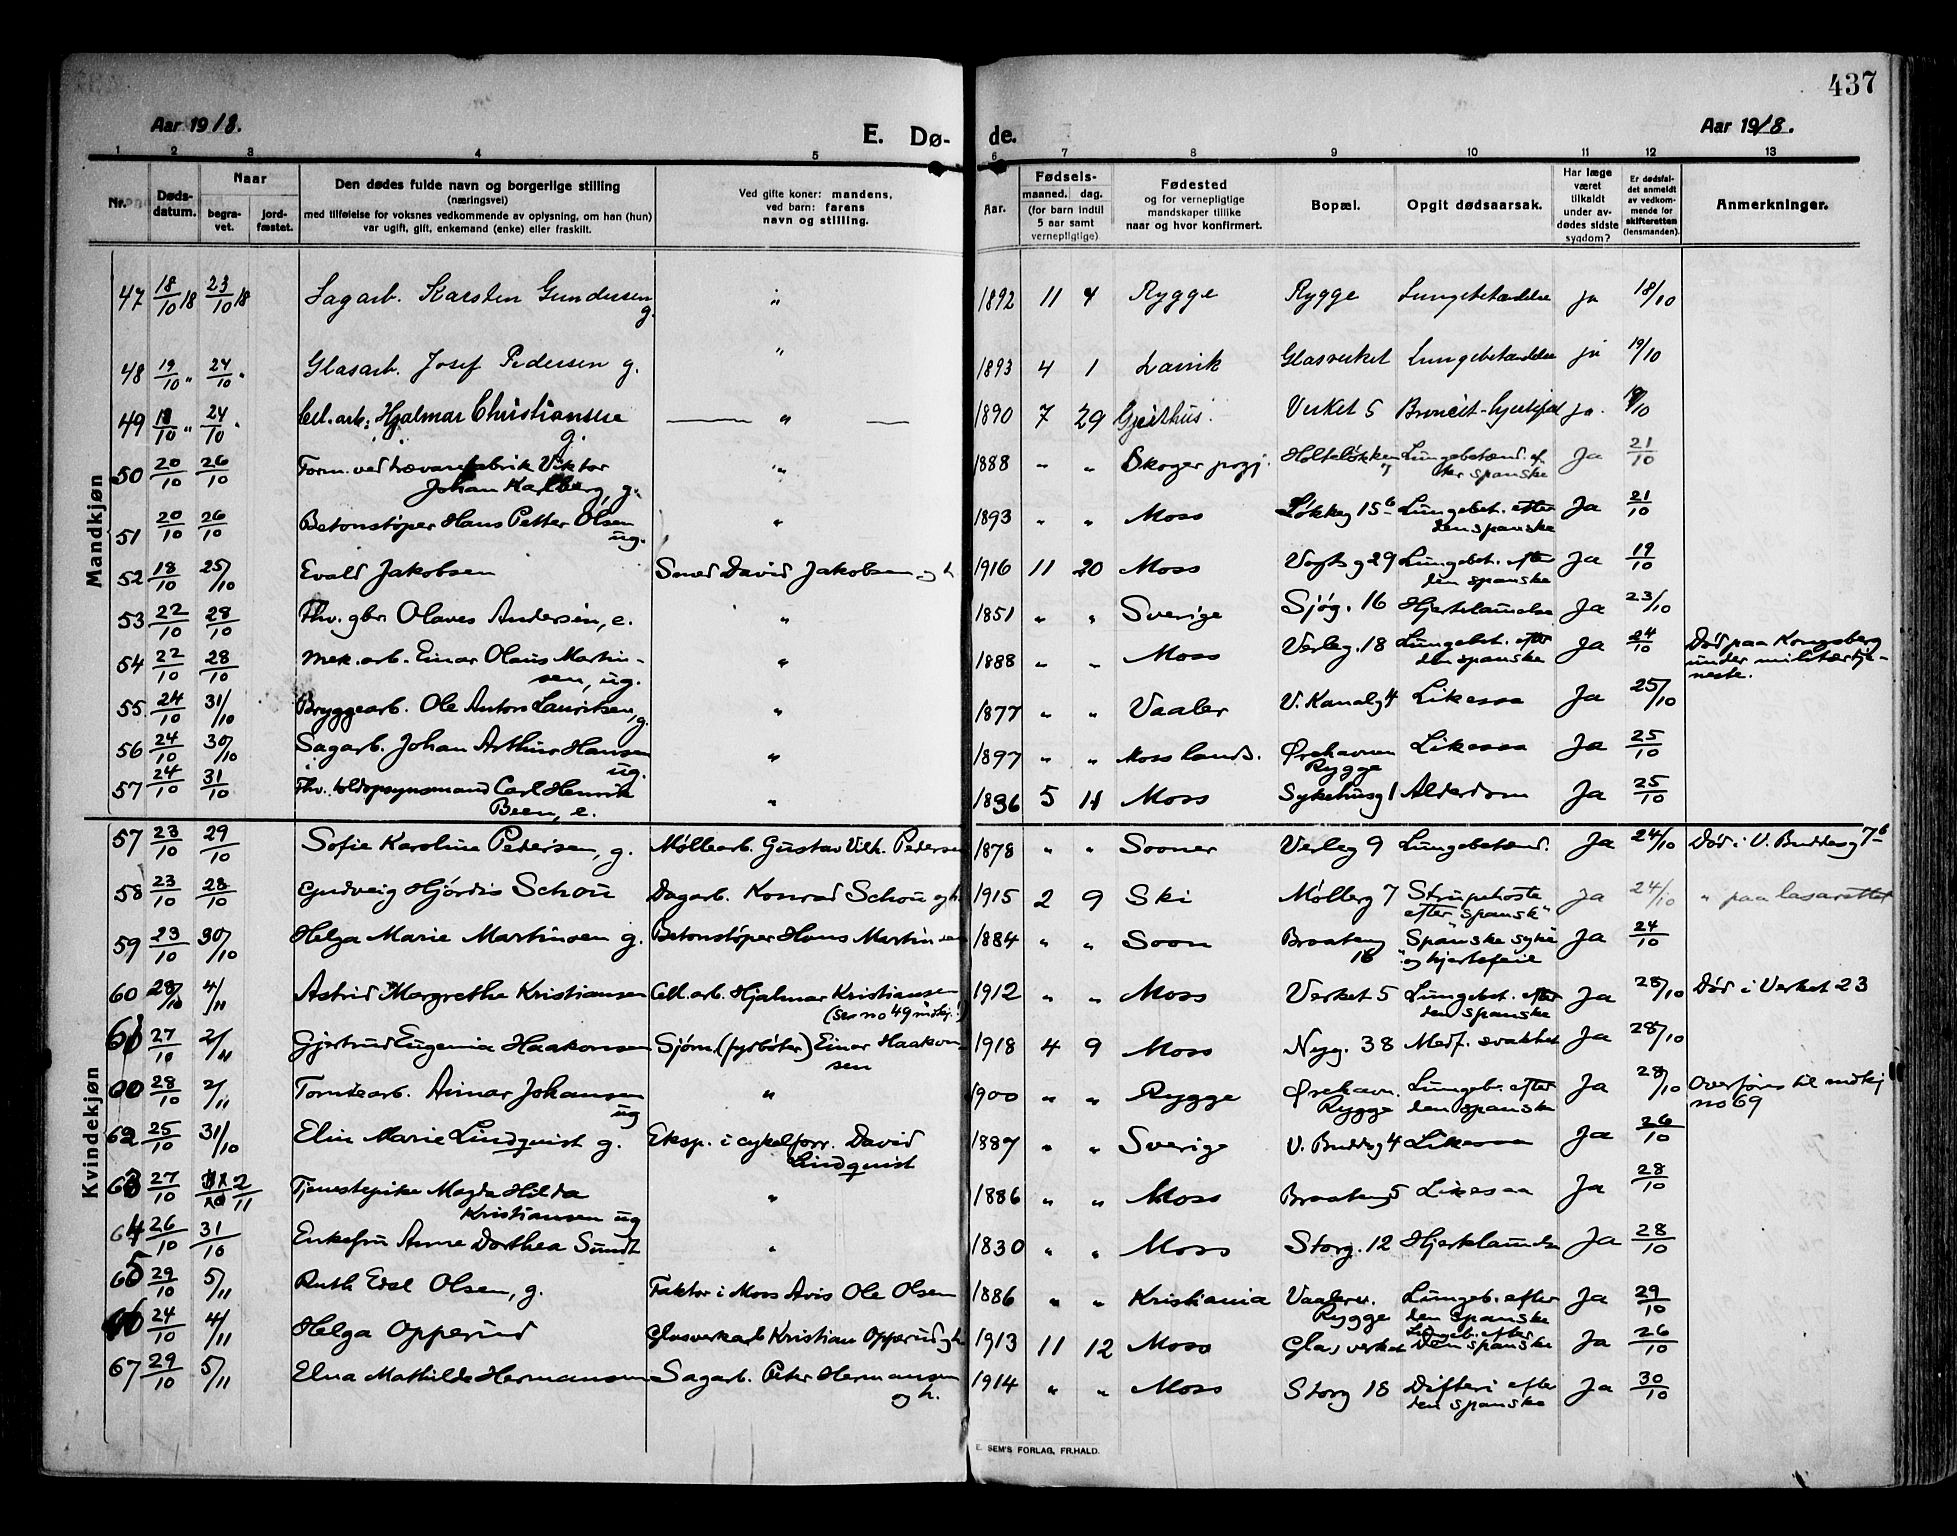 437
Aar 1918.
E. Dø- de.
Aar 1918.
1 2 3 4 5 6 7 8 9 10 11 12 13
Nr.
Døds-
datum.
Naar
begra-
vet.
jord-
fæstet.
Den dødes fulde navn og borgerlige stilling
(næringsvei)
med tilføielse for voksnes vedkommende av oplysning, om han (hun)
var ugift, gift, enkemand (enke) eller fraskilt.
Ved gifte koner: mandens,
ved barn: farens
navn og stilling.
Aar.
Fødsels-
maaned. dag.
(for barn indtil
5 aar samt
vernepligtige)
Fødested
og for vernepligtige
mandskaper tillike
naar og hvor konfirmert.
Bopæl.
Opgit dødsaarsak.
Har læge
været
tilkaldt
under av-
dødes sidste
sygdom?
Er dødsfal-
det anmeldt
av vedkom-
mende for
skifteretten
(lensmanden).
Anmerkninger.
Mandkjøn
47 18/10 18 23/10 18 Sagarb. Karsten Gundersen g. " 1892 11 4 Rygge Rygge Lungebetændelse ja 18/10
48 19/10 " 24/10 " Glasarb. Josef Pedersen g. " 1893 4 1 Larvik Glasverket Lungebetændelse ja 19/10
49 18/10 " 24/10 " Cel. arb. Hjalmar Christiansen g. " 1890 7 29 Gjeithus. Verket 5 Bronkit-hjertefeil ja. /10
50 20/10 26/10 Form. ved trævarefabrik Viktor
Johan Karlberg, g. " 1888 " " Skoger prgj. Holteløkken 7 Lungebetænd. ef-
ter spanske Ja 21/10
51 20/10 26/10 Betonstøper Hans Petter Olsen
ug. " 1893 " " Moss Løkkeg 15 b Lungebet. efter
den spanske Ja 21/10
52 18/10 25/10 Evald Jakobsen Smed David Jakobsen og h. 1916 11 20 Moss Vogtsg 29 Lungebet. efter
den spanske Ja 19/10
53 22/10 28/10 Fhv. gbr. Olaves Andersen, e. " 1851 " " Sverige Sjøg. 16 Hjertelamelse Ja 23/10
54 22/10 28/10 Mek. arb. Einar Olaus Martin-
sen, ug. " 1888 " " Moss Verleg. 18 Lungebet. efter
den spanske Ja 24/10 Død paa Kongsberg
under militærtje-
neste.
55 24/10 31/10 Bryggearb. Ole Anton Lauritsen, g. " 1877 " " Vaaler V. Kanalg 4 Likessa Ja 25/10
56 24/10 30/10 Sagarb. Johan Arthur Hansen
ug. " 1897 " " Moss lands. Ørehavnen
Rygge Likessa Ja 25/10
57 24/10 31/10 Fhv. toldopsynsmand Carl Henrik
Been, e. " 1836 5 11 Moss Sykehusg 1 Alderdom Ja 25/10
Kvindekjøn
57 23/10 29/10 Sofie Karoline Pedersen, g. Møllearb. Gustav Vilh. Pedersen 1878 " " Sooner Verleg 9 Lungebetænd. Ja 24/10 Død i V. Buddesg 7 b
58 23/10 28/10 Gudveig Hjördis Schou Dagarb. Konrad Schou og h. 1915 2 9 Ski Møllerg 7 Strupehoste
efter "spansk" ja 24/10 " paa lasarettet
59 23/10 30/10 Helga Marie Martinsen g. Betonstøper Hans Martinsen 1884 " " Soon Braateng
16 "Spanske syke"
og hjertefeil Ja 24/10
60 28/10 4/11 Astrid Margrethe Kristiansen Cell. arb. Hjalmar Kristiansen
(Se no 49 mdkj.!) 1912 " " Moss Verket 5 Lungebet. efter
den spanske Ja 28/10 Død i Verket 23
61 27/10 2/11 Gjertrud Eugenia Haakonsen Sjøm. (fyrbøter) Einar Haakon-
sen 1918 4 9 Moss Nyg. 38 Medf. svakhet Ja 28/10
60 28/10 2/11 Tomtearb. Aimar Johansen
ug " 1900 " " Rygge Ørehavn.
Rygge Lungeb. efter
den spanske Ja 28/10 Overføres til mdkj
no 69
62 25/10 31/10 Elin Marie Lindquist g. Eksp. i cykelforr. David
Lindquist 1887 " " Sverige V. Buddsg 4 Likessa Ja 26/10
63 27/10 2/11 Tjenestepike Magda Hilda
Kristiansen ug " 1886 " " Moss Braateng 5 Likessa Ja 28/10
64 26/10 31/10 Enkefru Anne Dorthea Sundt " 1830 " " Moss Storg. 12 Hjertelamelse Ja 28/10
65 29/10 5/11 Ruth Edel Olsen, g. Faktor i Moss Avis Ole Olsen 1886 " " Kristiania Vaalerv.
Rygge Lungeb. efter
den spanske Ja 29/10
66 24/10 4/11 Helga Opperud Glasverkarb Kristian Opperud og h. 1913 11 12 Moss Glasverket Lungeb. efter
Den spanske Ja 26/10
67 29/10 5/11 Elna Mathilde Hermansen Sagarb. Peter Hermansen
og h. 1914 " " Moss Storg 18 Difteri efter
den spanske Ja 30/10
E. SEM'S FORLAG, FR.HALD.